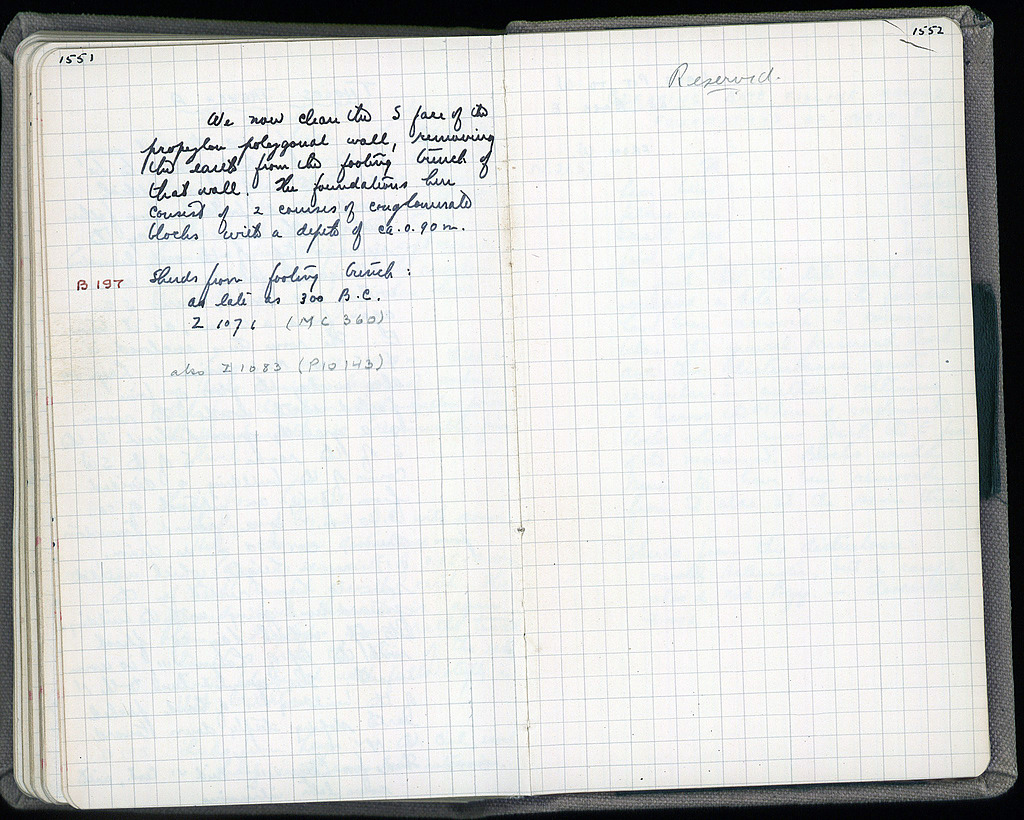 1551
We now clean the S face of the
propylon polygonal wall, removing
the earth from the footing trench of
that wall. The foundations here
consist of 2 courses of conglomerate
blocks with a depth of ca. 0.90 m.
B 197 Sherds from footing trench :
as late as 300 B.C.
Z 1071 (MC 360)
also Z 1083 (P10143)
1552
Reserved.